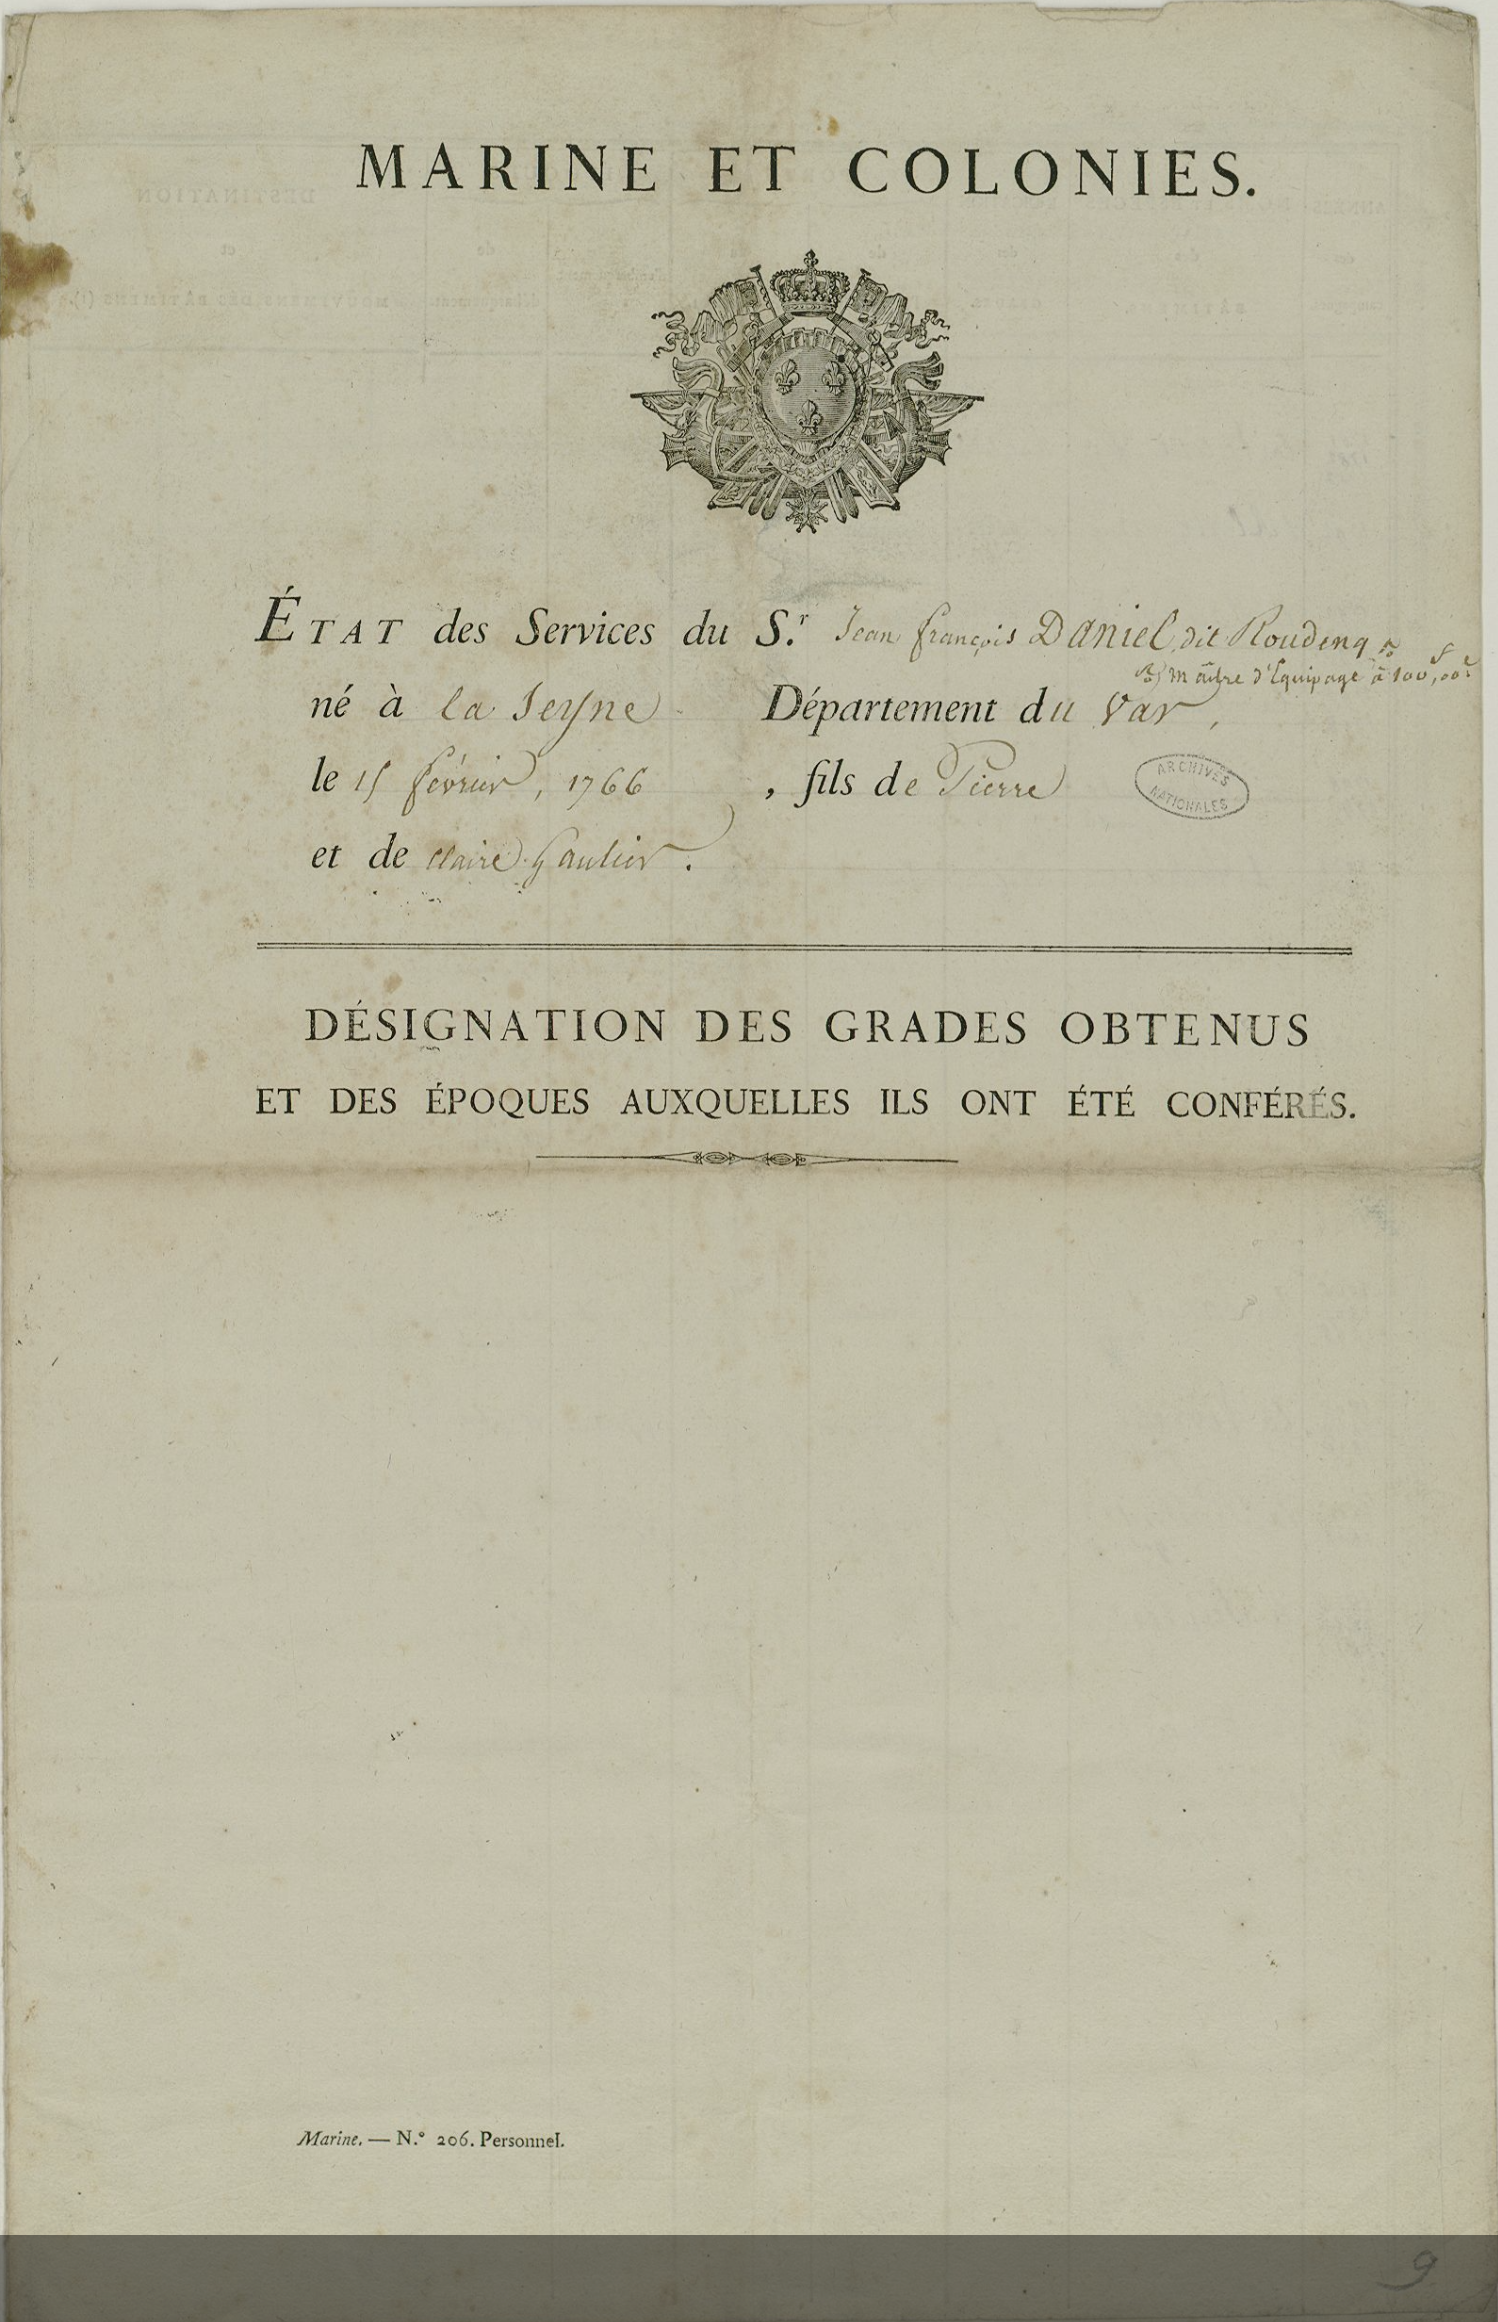 MARINE ET COLONIES.
ÉTAT des Services du S.r Jean françois Daniel, dit Roudenq
m aître d'Equipage à 100
né à la Seyne Département du Var,
le 15 février, 1766, fils de Pierre
ARCHIVES NATIONALES
et de Claire Gautier.
DÉSIGNATION DES GRADES OBTENUS
ET DES ÉPOQUES AUXQUELLES ILS ONT ÉTÉ CONFÉRÉS.
Marine. — N.° 206. Personnel.
9